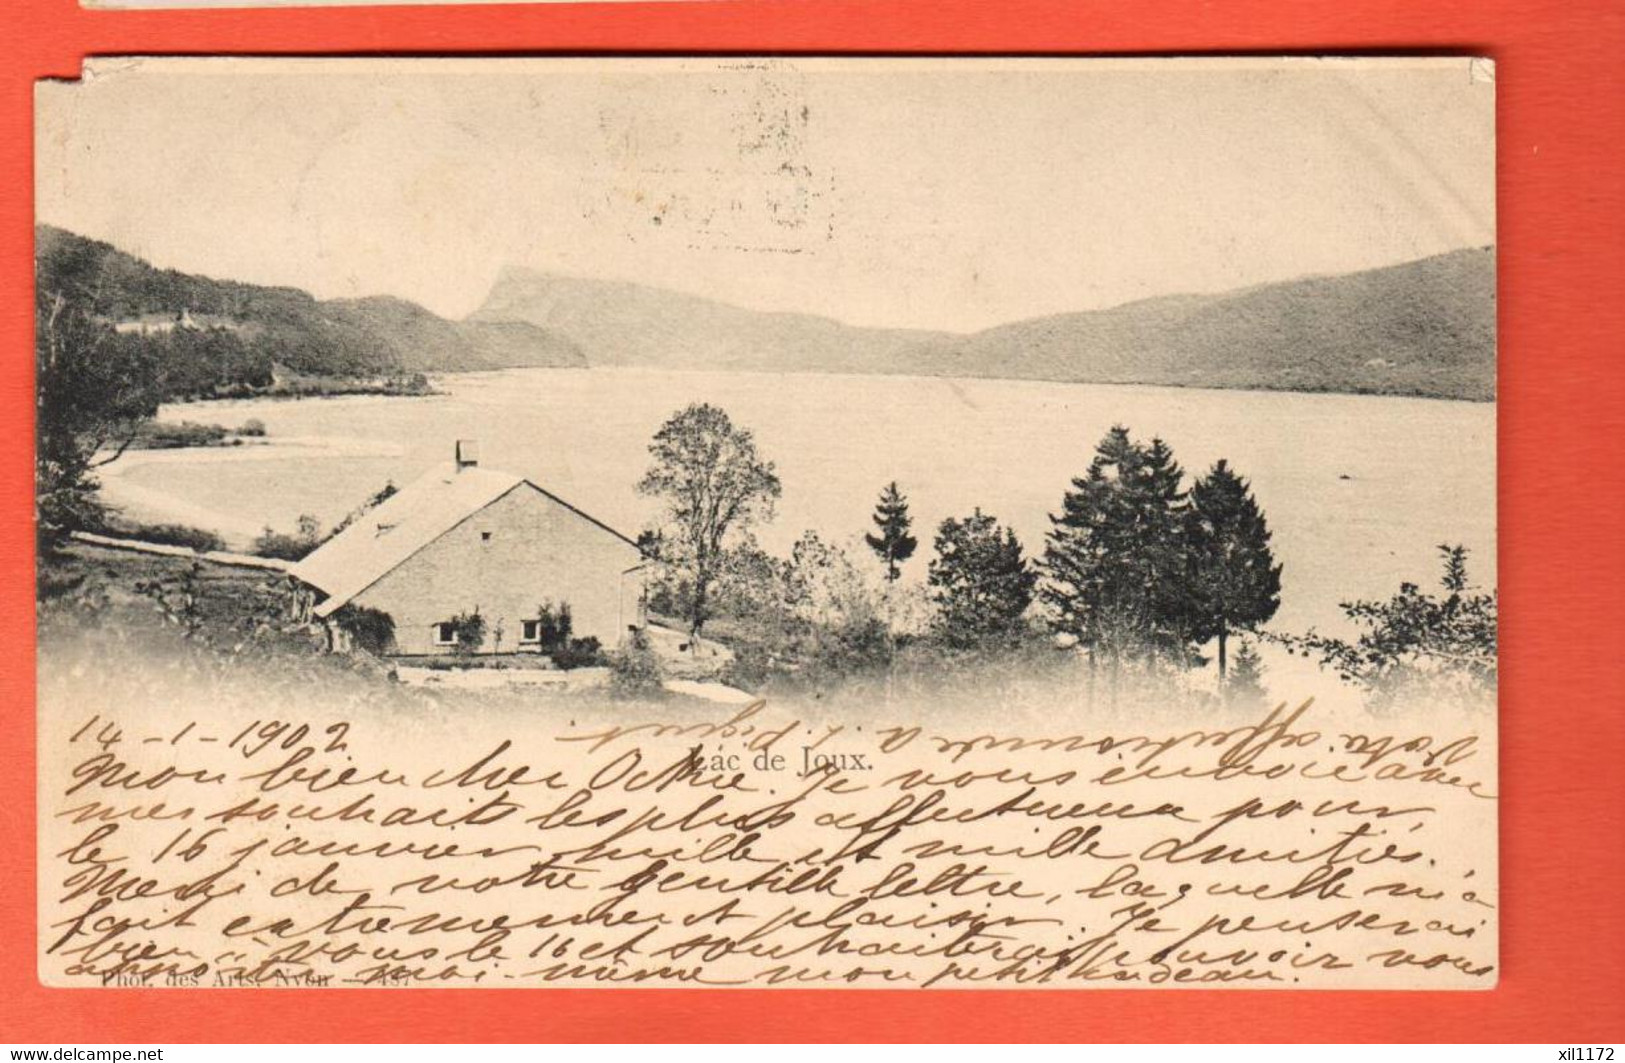 14-1-1902
Lac de Joux.
Mon bien cher Octave. Je vous envoie avec
mes souhaits les plus affectueux pour
le 16 janvier mille et mille amitiés.
Merci de votre gentille lettre, laquelle m'a
fait extrêmement plaisir. Je penserai
bien à vous le 16 et souhaiterais pouvoir vous
moi-même mon petit cadeau.
Votre affectionnée
Phot. des Arts, Nyon — 487
www.delcampe.net
xil1172